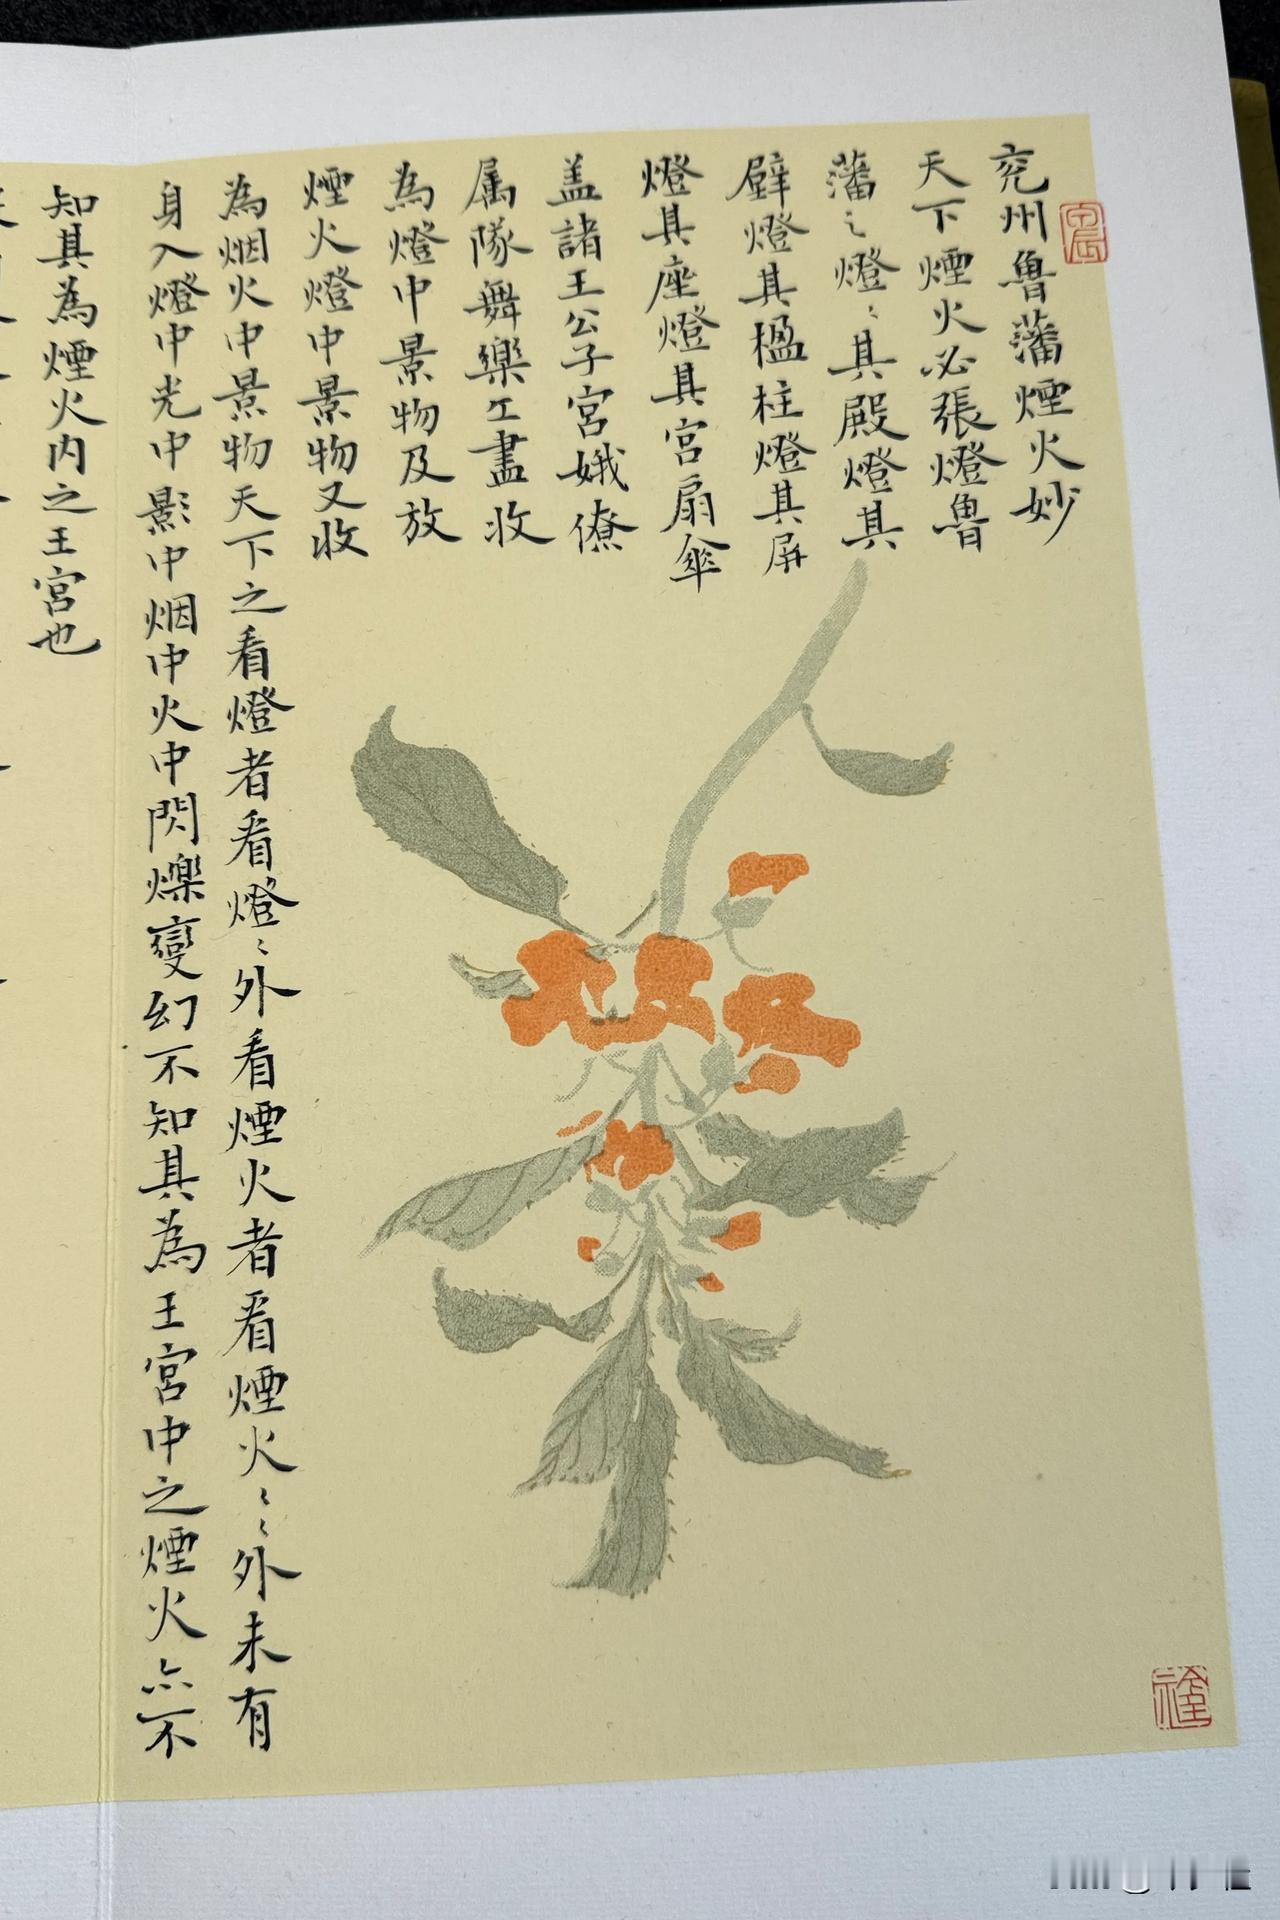 兖州魯藩煙火妙
天下煙火必張燈魯
藩之燈〻其殿燈其
壁燈其楹柱燈其屏
燈其座燈其宮扇傘
盖諸王公子宮娥僚
属隊舞樂工盡收
為燈中景物及放
煙火燈中景物又收
為烟火中景物天下之看燈者看燈〻外看煙火者看煙火〻〻外未有
身入燈中光中影中烟中火中閃爍變幻不知其為王宮中之煙火亦不
知其為煙火内之王宮也